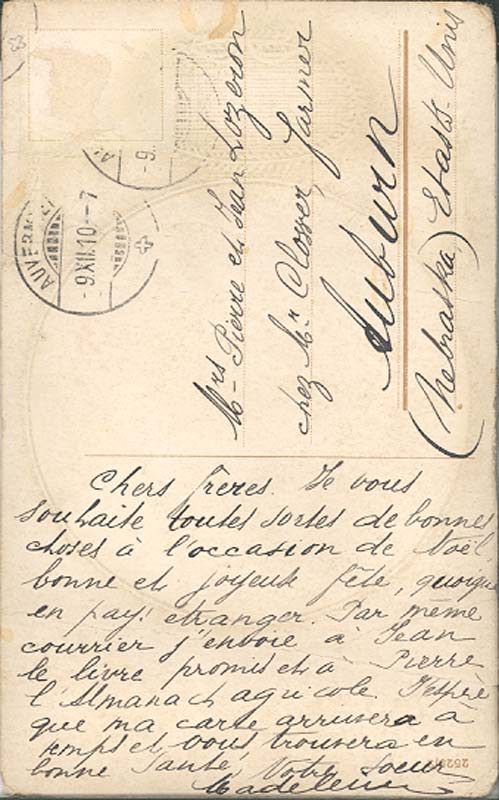 AUVERN
-9.XII.10.-7
-9.
Mrs Pierre et Jean Lozeron
chez Mr Closser, farmer
Auburn
(Nebraska) Etats-Unis
Chers frères. Je vous
souhaite toutes sortes de bonnes
choses à l'occasion de Noël
bonne et joyeuse fête, quoique
en pays etranger. Par même
courrier j'envoie à Jean
le livre promis et à Pierre
l'Almanach agricole. J'espère
que ma carte arrivera à
temps et vous trouvera en
bonne santé, Votre soeur
Madeleine